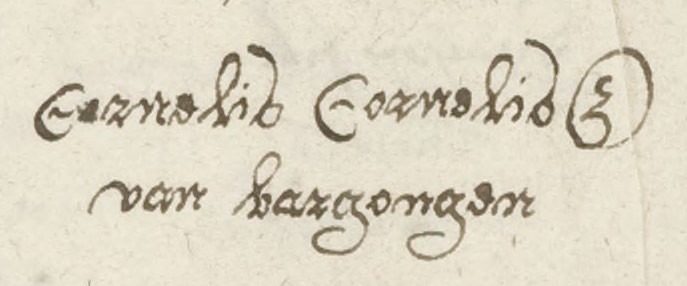 Cornelis Cornelis z
van bargongen